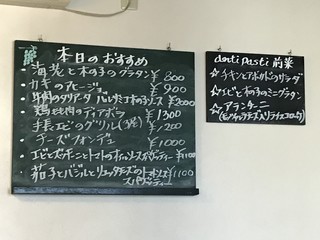 本日のおすすめ
・海老と木の子のグラタン ¥800
・カキのアヒージョ ¥900
・牛肉のタリアータ バルサミコ木の子ソース ¥2000
・鶏もも肉のディアボラ ¥1300
・手長エビのグリル(3尾) ¥1200
・チーズフォンデュ ¥1000
・エビとズッキーニとトマトのオイルソーススパゲッティー ¥1100
・茄子とバジルとリコッタチーズのトマトソーススパゲッティー ¥1100
anti pasti 前菜
☆チキンとアボカドのサラダ
☆エビと木の子のミニグラタン
☆アランチーニ
(モッツァレラチーズ入りライスコロッケ)